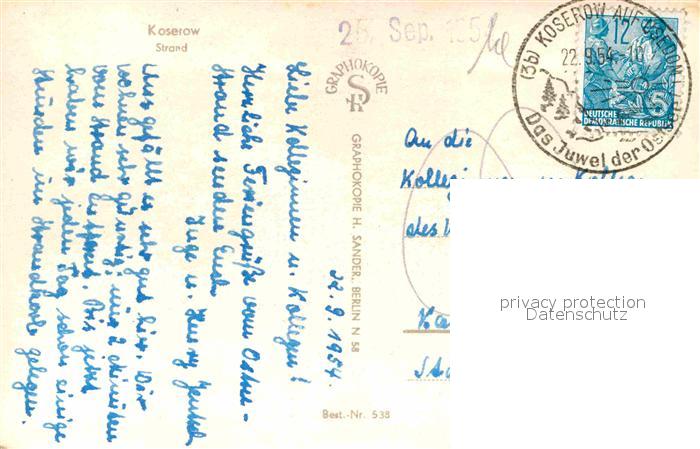 Koserow
Strand
25. Sep. 1954
(3b) KOSEROW AUF USEDOM
22.9.54.-10
Das Juwel der Ostsee
12
DEUTSCHE
DEMOKRATISCHE REPUBLIK
GRAPHOKOPIE
GRAPHOKOPIE H. SANDER, BERLIN N 58
Best.-Nr. 538
22.9.1954.
Liebe Kolleginnen u. Kollegen!
Herzliche Feriengrüße vom Ostsee-
strand senden Euch
Inge u. Harry
Uns gefällt es sehr gut hier. Wir
wohnen sehr günstig, nur 2 Minuten
vom Strand entfernt. Bis jetzt
haben wir jeden Tag schon einige
Stunden im Strandkorb gelegen.
An die
des
privacy protection
Datenschutz